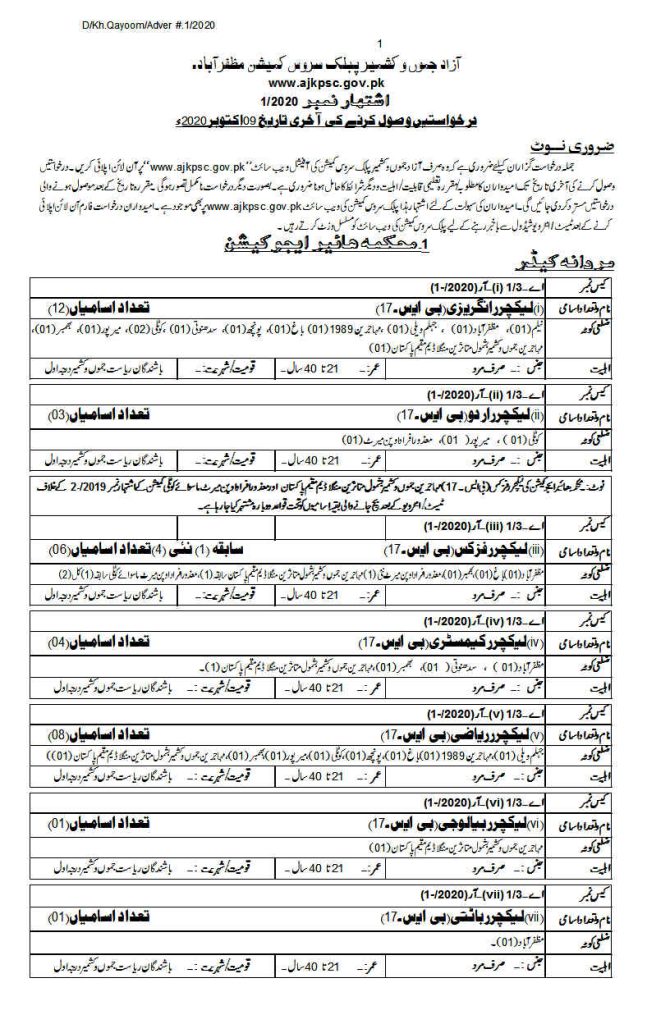 D/Kh.Qayoom/Adver #.1/2020
1
آزاد جموں و کشمیر پبلک سروس کمیشن مظفرآباد۔
www.ajkpsc.gov.pk
اشتہار نمبر 1/2020
درخواستیں وصول کرنے کی آخری تاریخ 09اکتوبر 2020ء
ضروری نوٹ
جملہ درخواست گزاران کیلئے ضروری ہے کہ وہ صرف آزاد جموں و کشمیر پبلک سروس کمیشن کی آفیشل ویب سائٹ "www.ajkpsc.gov.pk" پر آن لائن اپلائی کریں۔ درخواستیں
وصول کرنے کی آخری تاریخ تک امیدواران کا مطلوبہ/مقررہ تعلیمی قابلیت/اہلیت و دیگر شرائط کا حامل ہونا ضروری ہے۔ بصورت دیگر درخواست نامکمل تصور ہوگی۔ مقررہ تاریخ کے بعد موصول ہونے والی
درخواستیں مسترد کر دی جائیں گی۔ امیدواران کی سہولت کے لئے اشتہار ہذا پبلک سروس کمیشن کی ویب سائٹ www.ajkpsc.gov.pk پر بھی موجود ہے۔ امیدواران درخواست فارم آن لائن اپلائی
کرنے کے بعد ٹیسٹ/انٹرویو شیڈول سے باخبر رہنے کے لیے پبلک سروس کمیشن کی ویب سائٹ کو مسلسل وزٹ کرتے رہیں۔
1۔محکمہ ہائیر ایجوکیشن
مردانہ کیڈر
کیس نمبر اے۔1/3 (i)۔آر(2020/-1)
نام و تعداد اسامی (i)لیکچرر انگریزی(بی ایس۔17) تعداد اسامیاں(12)
ضلعی کوٹہ نیلم(01)، مظفرآباد(01)، جہلم ویلی(01)، مہاجرین1989(01) باغ(01)، پونچھ(01)، سدھنوتی(01)، کوٹلی(02)، میرپور(01)، بھمبر(01)،
مہاجرین جموں و کشمیر بشمول متاثرین منگلا ڈیم مقیم پاکستان(01)
اہلیت جنس :۔ صرف مرد عمر:۔ 21 تا 40 سال۔ قومیت/شہریت :۔ باشندگان ریاست جموں و کشمیر درجہ اول
کیس نمبر اے۔1/3 (ii)۔آر(2020/-1)
نام و تعداد اسامی (ii)لیکچرر اردو(بی ایس۔17) تعداد اسامیاں(03)
ضلعی کوٹہ کوٹلی(01)، میرپور(01)، معذور افراد اوپن میرٹ(01)
اہلیت جنس :۔ صرف مرد عمر:۔ 21 تا 40 سال۔ قومیت/شہریت :۔ باشندگان ریاست جموں و کشمیر درجہ اول
نوٹ:۔ محکمہ ہائیر ایجوکیشن کی لیکچرر فزکس(بی ایس۔17) مہاجرین جموں و کشمیر بشمول متاثرین منگلا ڈیم مقیم پاکستان اور معذور افراد اوپن میرٹ ماسوائے کوٹلی کمیشن کے اشتہار نمبر 2/2019- کے خلاف
ٹیسٹ/انٹرویو کے بعد بچ جانے والی بقیہ اسامیوں کو تحت قواعد دوبارہ مشتہر کیا جا رہا ہے۔
کیس نمبر اے۔1/3 (iii)۔آر(2020/-1)
نام و تعداد اسامی (iii)لیکچرر فزکس(بی ایس۔17) سابقہ (1) نئی (4)تعداد اسامیاں(06)
ضلعی کوٹہ مظفرآباد(01)باغ(01)، بھمبر(01)، معذور افراد اوپن میرٹ نئی(1)مہاجرین جموں و کشمیر بشمول متاثرین منگلا ڈیم مقیم پاکستان سابقہ(1)، معذور افراد اوپن میرٹ ماسوائے کوٹلی سابقہ(1)کل(2)
اہلیت جنس :۔ صرف مرد عمر:۔ 21 تا 40 سال۔ قومیت/شہریت :۔ باشندگان ریاست جموں و کشمیر درجہ اول
کیس نمبر اے۔1/3 (iv)۔آر(2020/-1)
نام و تعداد اسامی (iv)لیکچرر کیمسٹری(بی ایس۔17) تعداد اسامیاں(04)
ضلعی کوٹہ مظفرآباد(01)، سدھنوتی(01)، بھمبر(01)، مہاجرین جموں و کشمیر بشمول متاثرین منگلا ڈیم مقیم پاکستان(1)۔
اہلیت جنس :۔ صرف مرد عمر:۔ 21 تا 40 سال۔ قومیت/شہریت :۔ باشندگان ریاست جموں و کشمیر درجہ اول
کیس نمبر اے۔1/3 (v)۔آر(2020/-1)
نام و تعداد اسامی (v)لیکچرر ریاضی(بی ایس۔17) تعداد اسامیاں(08)
ضلعی کوٹہ جہلم ویلی(01)، مہاجرین1989(01)باغ(01)، پونچھ(01)، کوٹلی(01)، میرپور(01)، بھمبر(01)، مہاجرین جموں و کشمیر بشمول متاثرین منگلا ڈیم مقیم پاکستان(01))
اہلیت جنس :۔ صرف مرد عمر:۔ 21 تا 40 سال۔ قومیت/شہریت :۔ باشندگان ریاست جموں و کشمیر درجہ اول
کیس نمبر اے۔1/3 (vi)۔آر(2020/-1)
نام و تعداد اسامی (vi)لیکچرر بیالوجی(بی ایس۔17) تعداد اسامیاں(01)
ضلعی کوٹہ مہاجرین جموں و کشمیر بشمول متاثرین منگلا ڈیم مقیم پاکستان(01)
اہلیت جنس :۔ صرف مرد عمر:۔ 21 تا 40 سال۔ قومیت/شہریت :۔ باشندگان ریاست جموں و کشمیر درجہ اول
کیس نمبر اے۔1/3 (vii)۔آر(2020/-1)
نام و تعداد اسامی (vii)لیکچرر باٹنی(بی ایس۔17) تعداد اسامیاں(01)
ضلعی کوٹہ مظفرآباد(01)۔
اہلیت جنس :۔ صرف مرد عمر:۔ 21 تا 40 سال۔ قومیت/شہریت :۔ باشندگان ریاست جموں و کشمیر درجہ اول